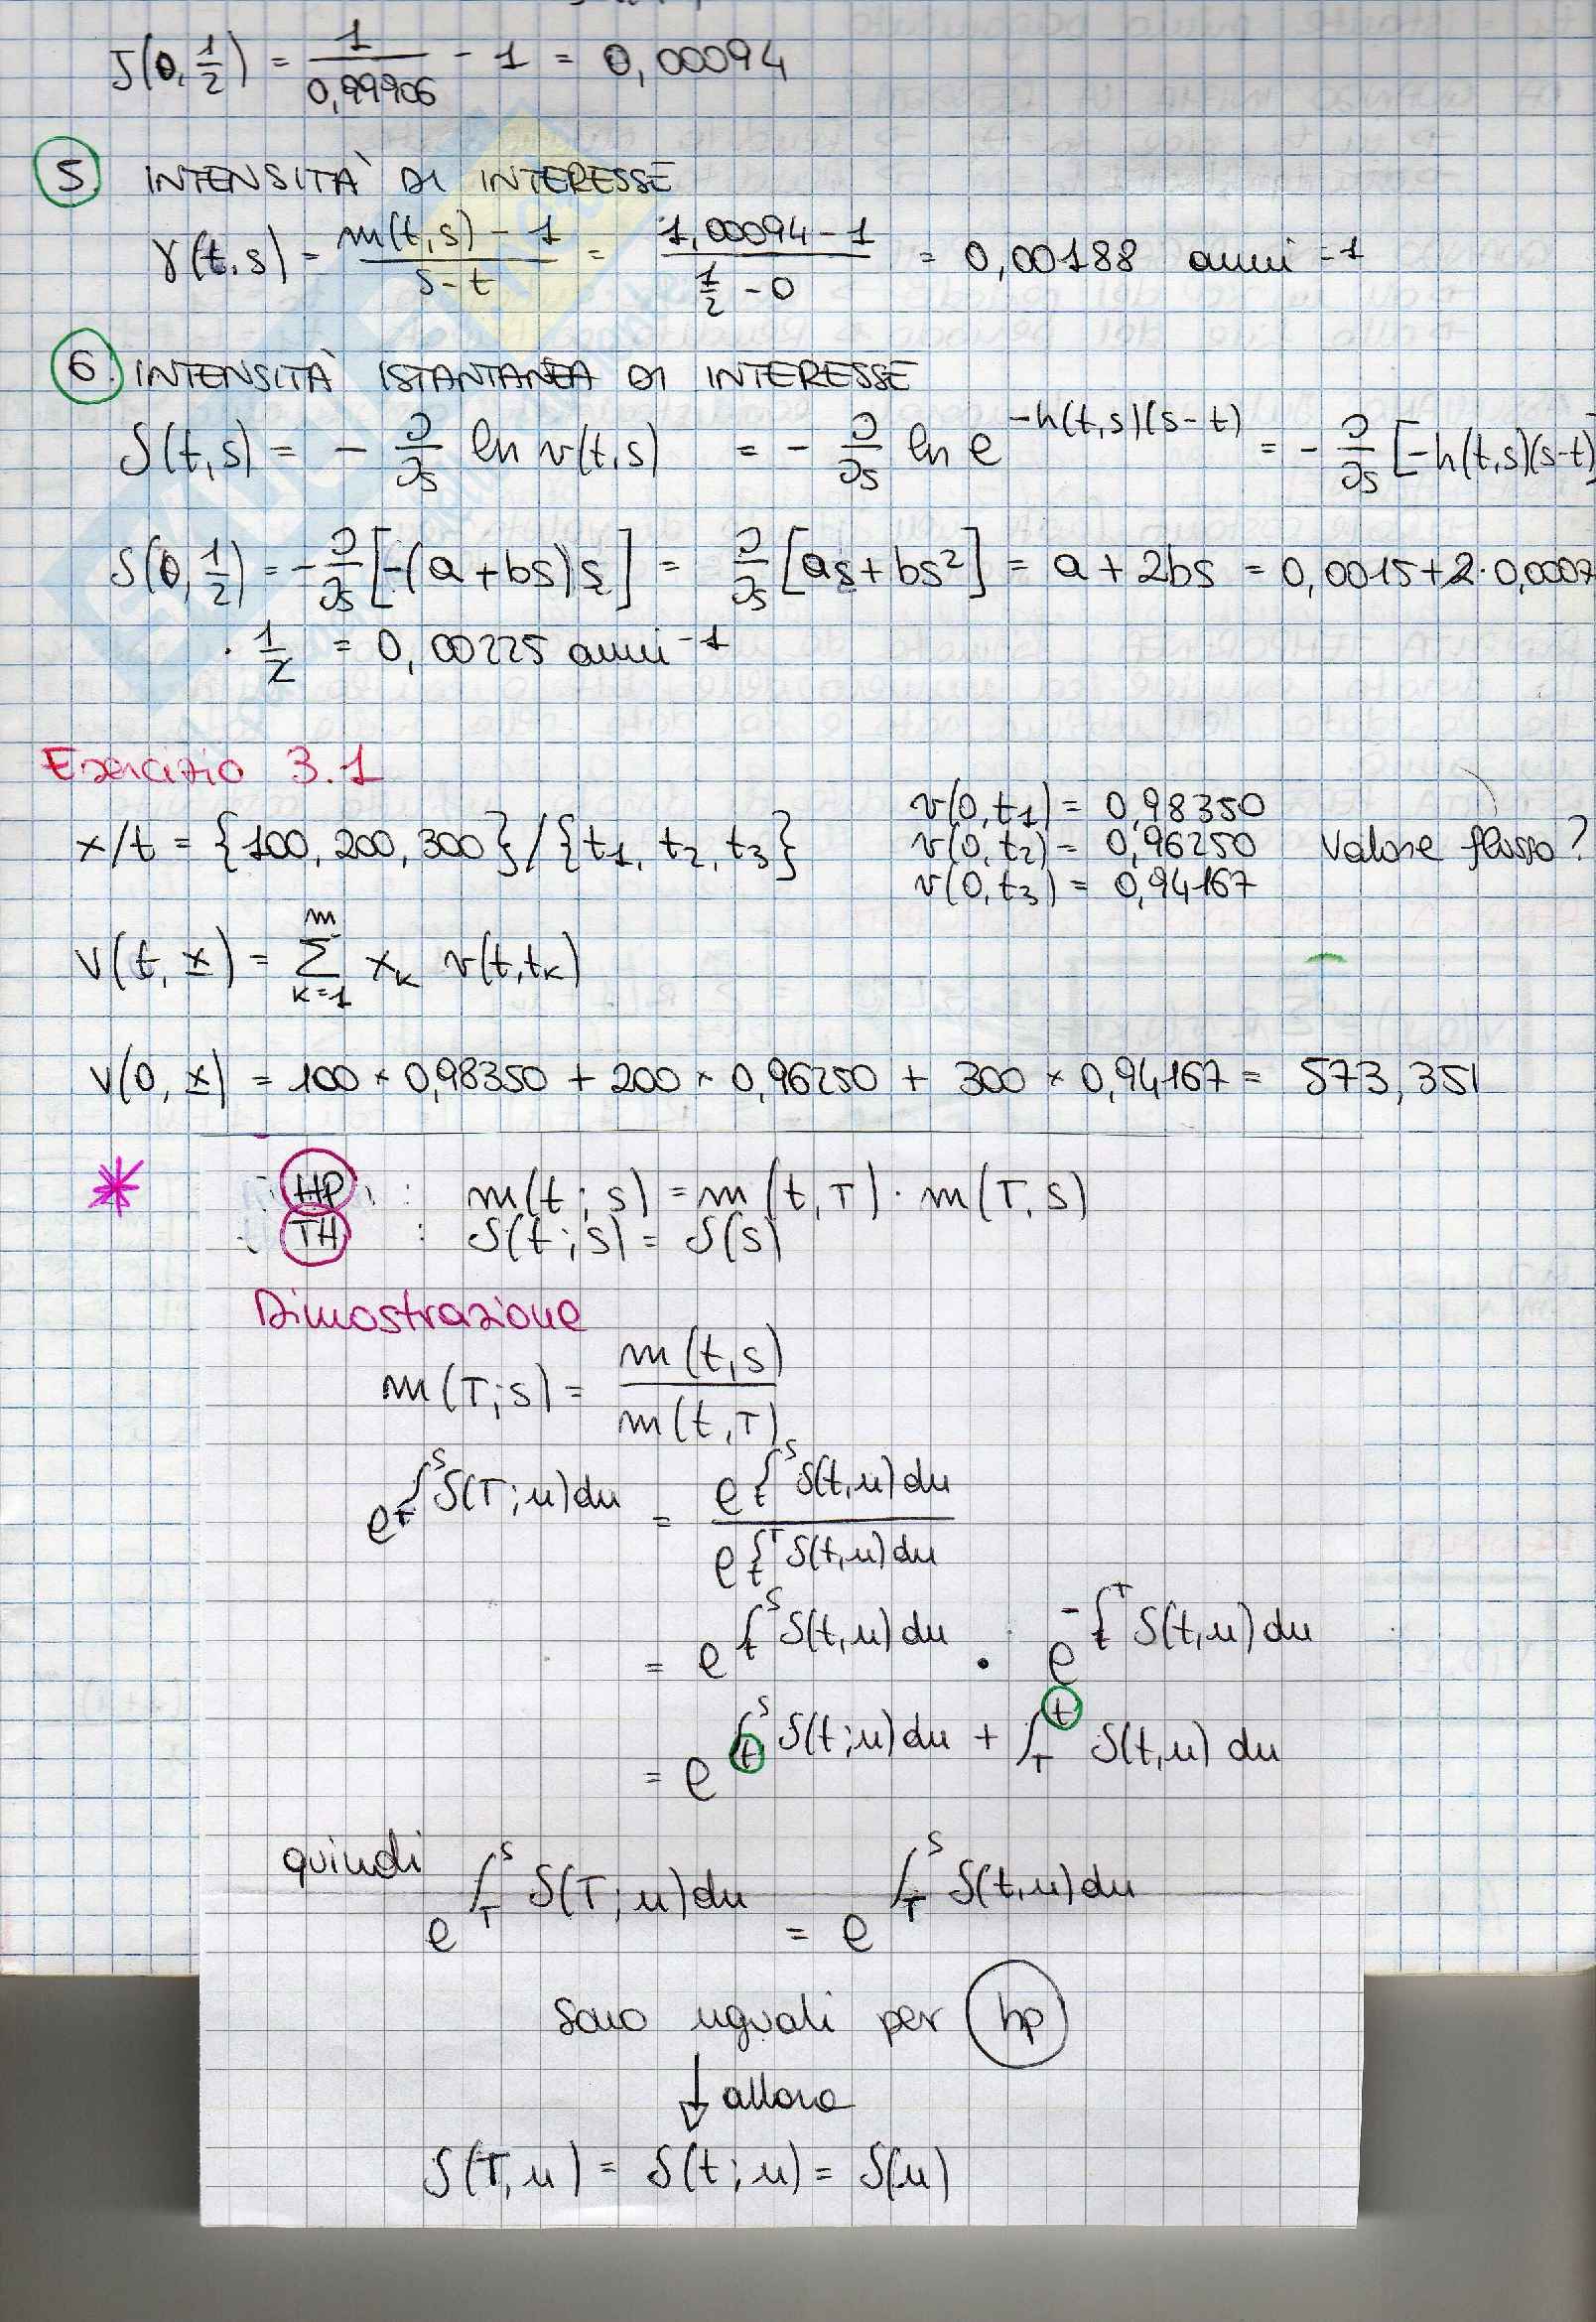 J(0, 1/2) = 1/0,99906 - 1 = 0,00094
5. INTENSITÀ DI INTERESSE
γ(t,s) = (m(t,s) - 1)/(s-t) = (1,00094 - 1)/(1/2 - 0) = 0,00188 anni -1
6. INTENSITÀ ISTANTANEA DI INTERESSE
δ(t,s) = - ∂/∂s ln v(t,s) = - ∂/∂s ln e^{-h(t,s)(s-t)} = - ∂/∂s [-h(t,s)(s-t)]
δ(0, 1/2) = - ∂/∂s [-(a+bs)s] = ∂/∂s [as+bs²] = a + 2bs = 0,0015+2·0,0007
· 1/2 = 0,00225 anni -1
Esercizio 3.1
x/t = {100, 200, 300}/{t1, t2, t3}
v(0,t1) = 0,98350
v(0,t2) = 0,96250 Valore flusso?
v(0,t3) = 0,94167
V(t, x) = Σ_{k=1}^{m} xk v(t,tk)
V(0, x) = 100 × 0,98350 + 200 × 0,96250 + 300 × 0,94167 = 573,351
* HP : m(t;s) = m(t,T) · m(T,s)
TH : δ(t;s) = δ(s)
Dimostrazione
m(T;s) = m(t,s)/m(t,T)
e^{∫_T^s δ(T;u)du} = e^{∫_t^s δ(t,u)du} / e^{∫_t^T δ(t,u)du}
= e^{∫_t^s δ(t,u)du} · e^{-∫_t^T δ(t,u)du}
= e^{∫_t^s δ(t;u)du + ∫_T^t δ(t,u)du}
quindi e^{∫_T^s δ(T;u)du} = e^{∫_T^s δ(t,u)du}
sono uguali per hp
↓ allora
δ(T,u) = δ(t;u) = δ(u)